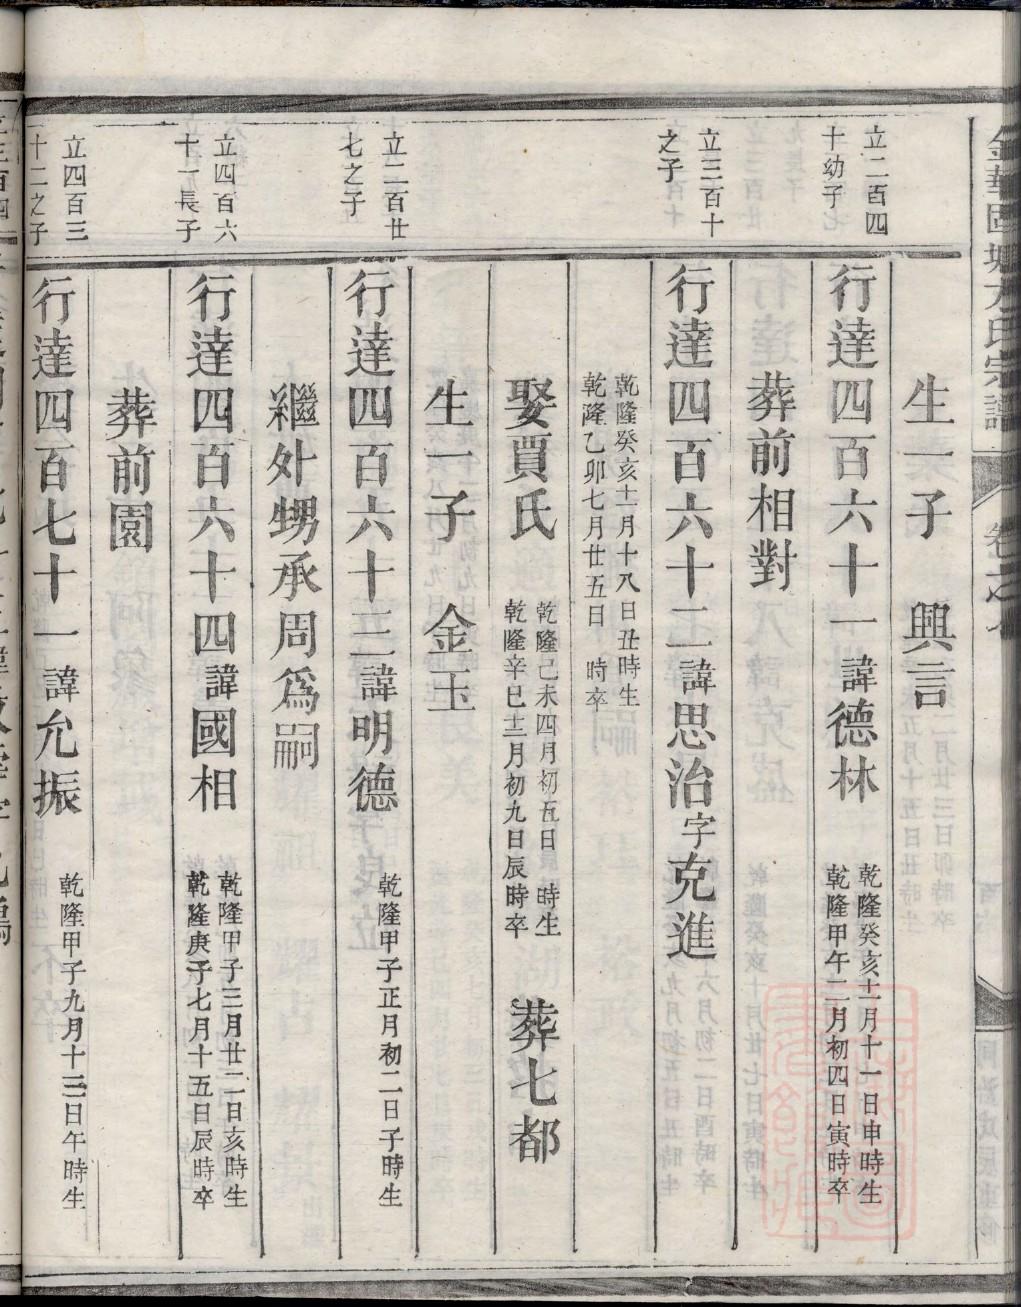 生一子 興言
立二百四
十幼子
行達四百六十一諱德林
乾隆癸亥十一月十一日申時生
乾隆甲午二月初四日寅時卒
葬前相對
立三百十
之子
行達四百六十二諱思治字克進
乾隆癸亥十一月十八日丑時生
乾隆乙卯七月廿五日 時卒
娶賈氏
乾隆己未四月初五日 時生
乾隆辛巳十二月初九日辰時卒
葬七都
生一子 金玉
立二百廿
七之子
行達四百六十三諱明德
乾隆甲子正月初二日子時生
繼外甥承周為嗣
立四百六
十一長子
行達四百六十四諱國相
乾隆甲子三月廿二日亥時生
乾隆庚子七月十五日辰時卒
葬前園
立四百三
十二之子
行達四百七十一諱允振
乾隆甲子九月十三日午時生